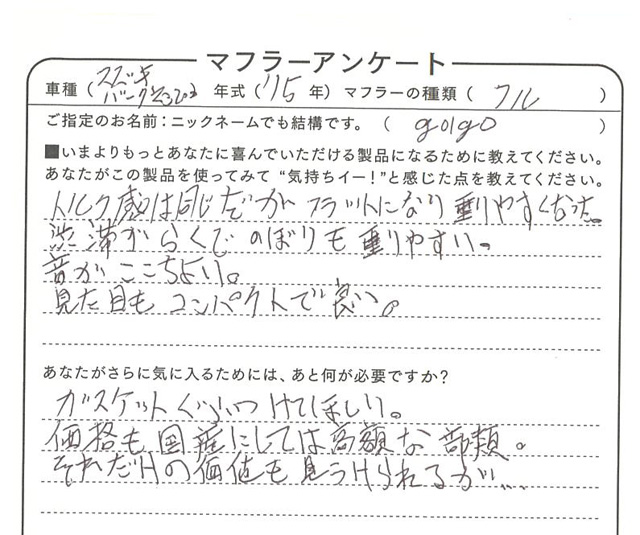 マフラーアンケート
車種（スズキ バーグマン200）年式（'15年）マフラーの種類（フル）
ご指定のお名前：ニックネームでも結構です。（golgo）
■いまよりもっとあなたに喜んでいただける製品になるために教えてください。
あなたがこの製品を使ってみて“気持ちイー！”と感じた点を教えてください。
トルク感は同じだがフラットになり乗りやすくなった。
渋滞がらくでのぼりも乗りやすい。
音がここちよい。
見た目もコンパクトで良い。
あなたがさらに気に入るためには、あと何が必要ですか？
ガスケットぐらいつけてほしい。
価格も国産にしては高額な部類。
それだけの価値も見うけられるが…